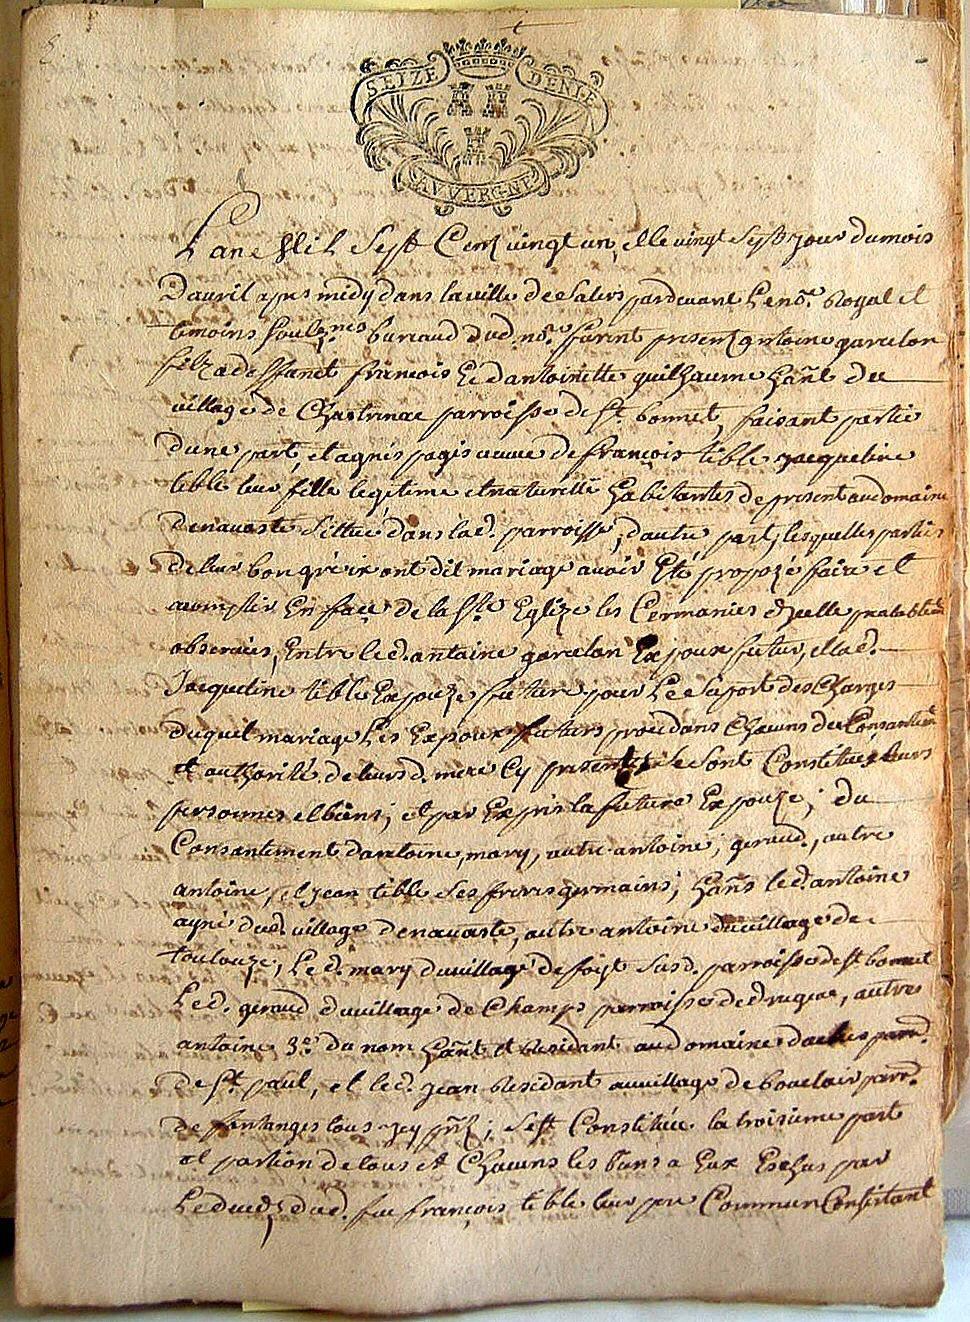 SEIZE DENIE
AUVERGNE
Lan Mil Sept Cent vingt un, et le vingt Sept jour du mois
D'avril apres midy dans la ville de Salers pardevant Le no.re Royal et
temoins soub.nes bureaud dud. no.re furent present antoine garcelon
filz a deffunct francois Et d'antoinette guilhaume hañt du
village de Chastrinac parroisse de St. bonnet, faisant partie
dune part, et agnés pagis veuve de françois tible jacqueline
tible leur fille legitime et naturelle habitantes de present au domaine
denavaste Sittué dans lad. parroisse, d'autre part, lesquelles parties
de leur bon gré ont dit mariage avoir Eté propozé faire et
acomplir En face de la Ste. Eglize les Ceremonies d'icelle
observées, Entre led. antoine garcelon Expoux futur, et lad.
Jacqueline tible Expouze future pour Le Suport des Charges
duquel mariage Les Expoux futurs procédans Chacuns du Consantemt.
et authorité de leurd. mere Cy presentes se Sont Constitués leurs
personnes et biens; et par Exprés la future Expouze; du
Consantement d'antoine, mary, autre antoine, geraud, autre
antoine, et jean tible Ses freres germains; hañs led. antoine
ayné dud. village denavaste, autre antoine du village de
toulouze, Le d. mary du village de foyt susd. parroisse de St bonnet
Le d. geraud du village de Champs parroisse de drugeac, autre
antoine 3.e du nom hañt et Residant au domaine parr.
de St. paul, et led. jean Residant au village de bouclair parr.
de fontanges tous icy pñs; Sest Constituée la troisieme part
et portion de tous et Chacuns les biens a Eux Eschus par
Le deces dud. feu françois tible leur pere Commun Consistant